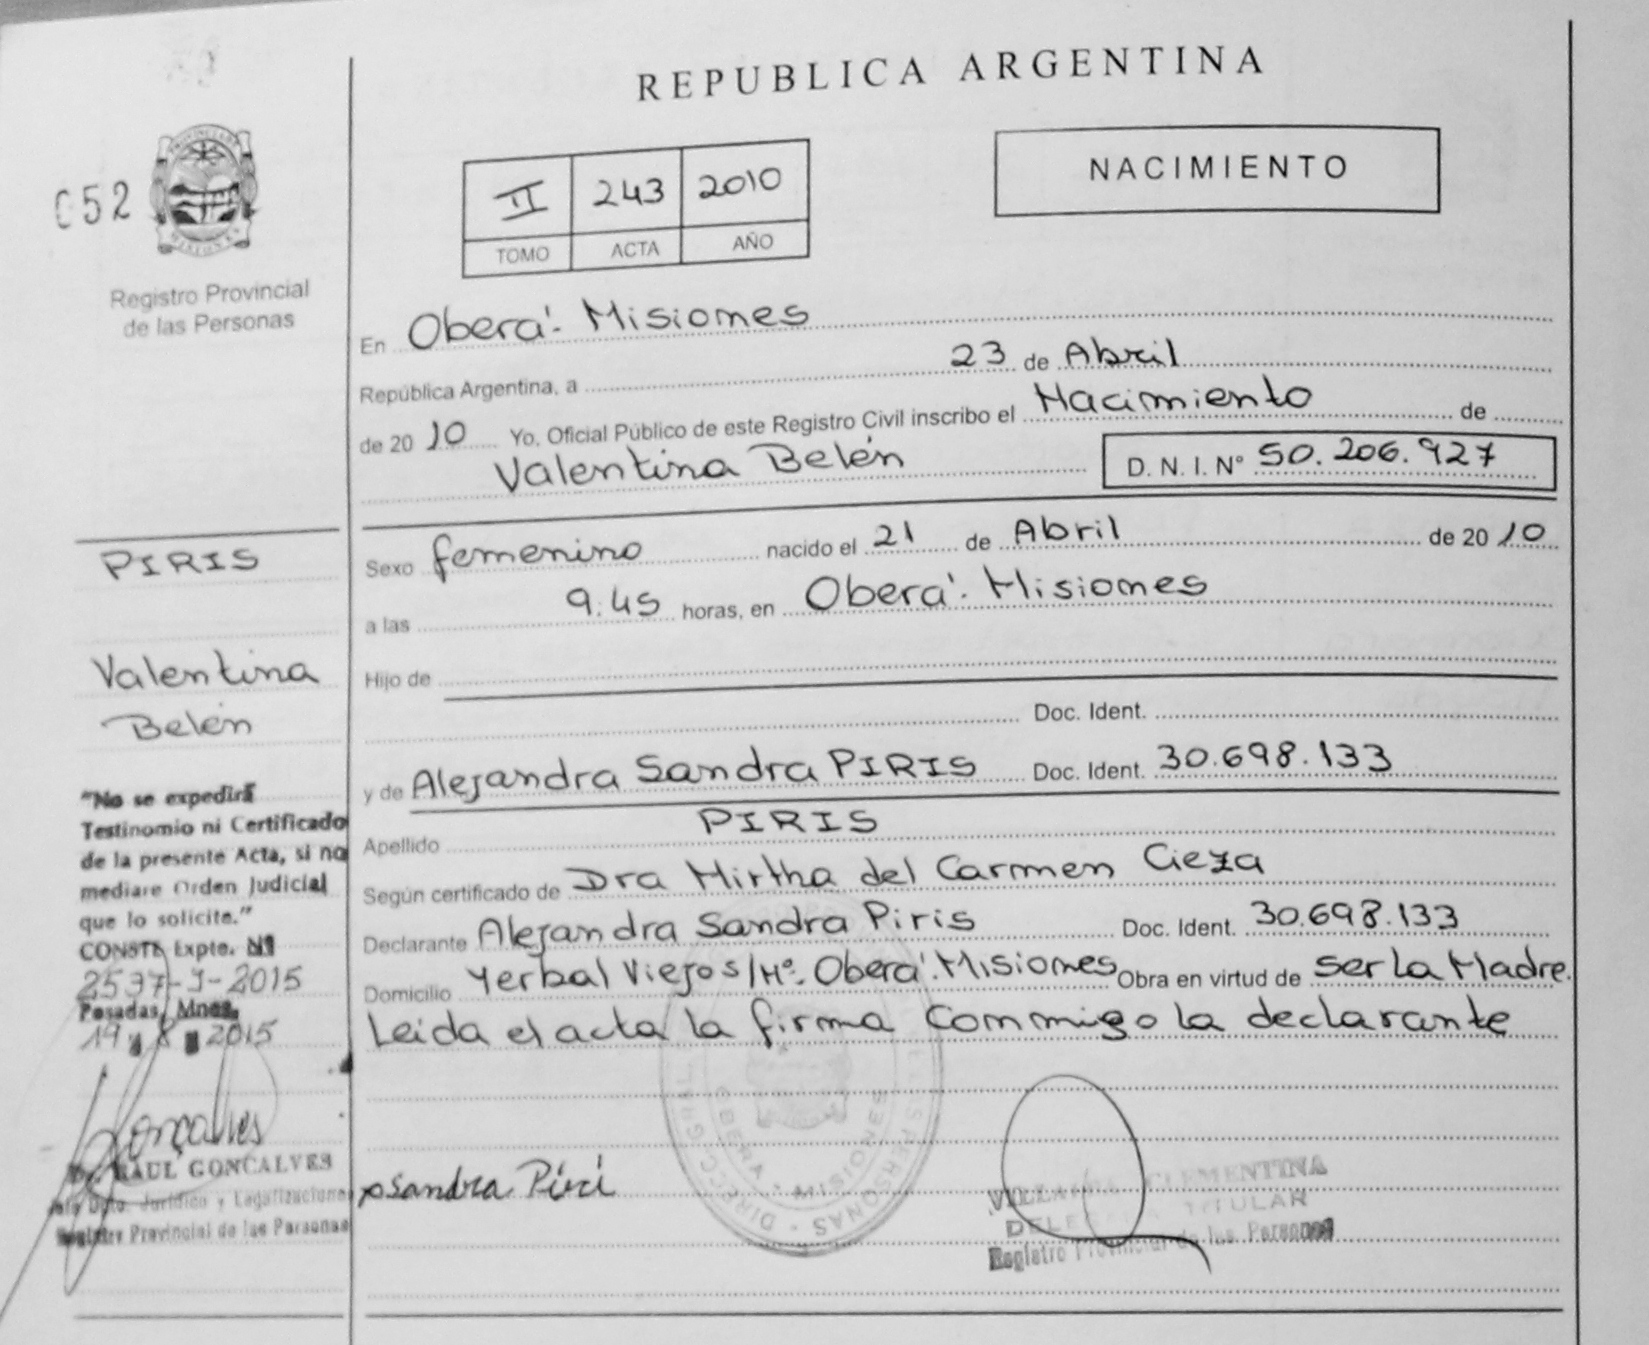 REPUBLICA ARGENTINA
NACIMIENTO
II 243 2010
TOMO ACTA AÑO
052
PROVINCIA DE MISIONES
Registro Provincial
de las Personas
En Oberá. Misiones
República Argentina, a 23 de Abril
de 2010 Yo, Oficial Público de este Registro Civil inscribo el Nacimiento de
Valentina Belén D. N. I. N° 50.206.927
PIRIS
Valentina
Belén
Sexo femenino nacido el 21 de Abril de 2010
a las 9:45 horas, en Oberá. Misiones
Hijo de
Doc. Ident.
y de Alejandra Sandra PIRIS Doc. Ident. 30.698.133
Apellido PIRIS
Según certificado de Dra Mirtha del Carmen Cieza
Declarante Alejandra Sandra Piris Doc. Ident. 30.698.133
Domicilio Yerbal Viejo S/Nº. Oberá. Misiones Obra en virtud de ser La Madre.
Leida el acta la firma Conmigo la declarante
"No se expedirá
Testinomio ni Certificado
de la presente Acta, si no
mediare Orden Judicial
que lo solicite."
CONSTE Expte. Nº
2537-J-2015
Posadas, Mnes.
19 8 2015
Gonçalves
Dr. RAUL GONCALVES
Jefe Dpto. Jurídico y Legalizaciones
Registro Provincial de las Personas
Sandra Piri
OBERA - MISIONES
CLEMENTINA
TITULAR
Registro Provincial de las Personas